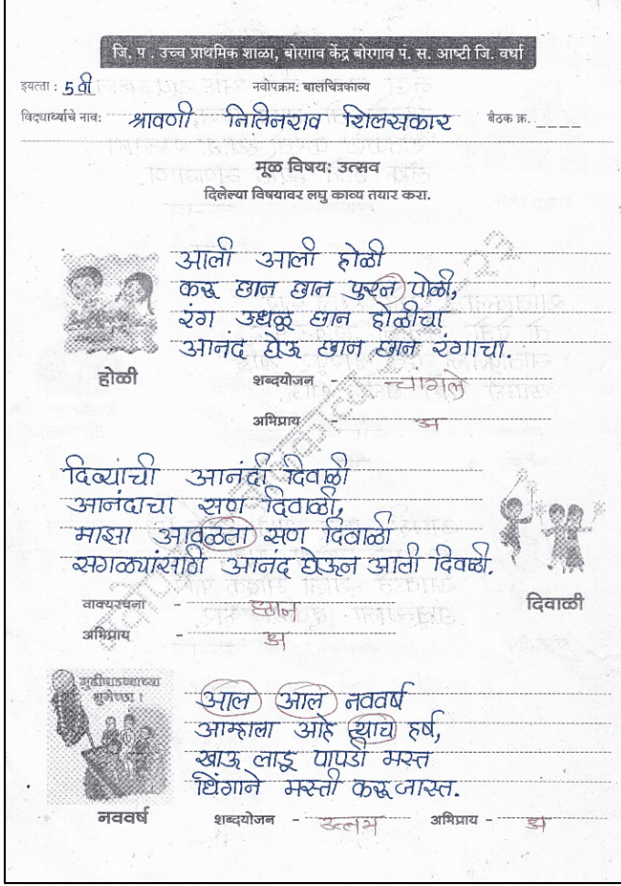 जि. प . उच्च प्राथमिक शाळा, बोरगाव केंद्र बोरगाव पं. स. आष्टी जि. वर्धा
इयत्ता : 5 वी नवोपक्रम: बालचित्रकाव्य
विद्यार्थ्याचे नाव: श्रावणी नितिनराव शिलसकार बैठक क्र. ____
मूळ विषय: उत्सव
दिलेल्या विषयावर लघु काव्य तयार करा.
आली आली होळी
करू छान छान पुरन पोळी,
रंग उधळू छान होळीचा
आनंद घेऊ छान छान रंगाचा.
होळी
शब्दयोजन - चागले
अभिप्राय - अ
दिव्यांची आनंदी दिवाळी
आनंदाचा सण दिवाळी,
माझा आवळता सण दिवाळी
सगळ्यांसाठी आनंद घेऊन आली दिवळी.
दिवाळी
वाक्यरचना - छान
अभिप्राय - अ
गुढीपाडव्याच्या
शुभेच्छा !
आल आल नववर्ष
आम्हाला आहे त्याच हर्ष,
खाऊ लाडू पापडी मस्त
धिंगाने मस्ती करू जास्त.
नववर्ष
शब्दयोजन - उत्तम अभिप्राय - अ